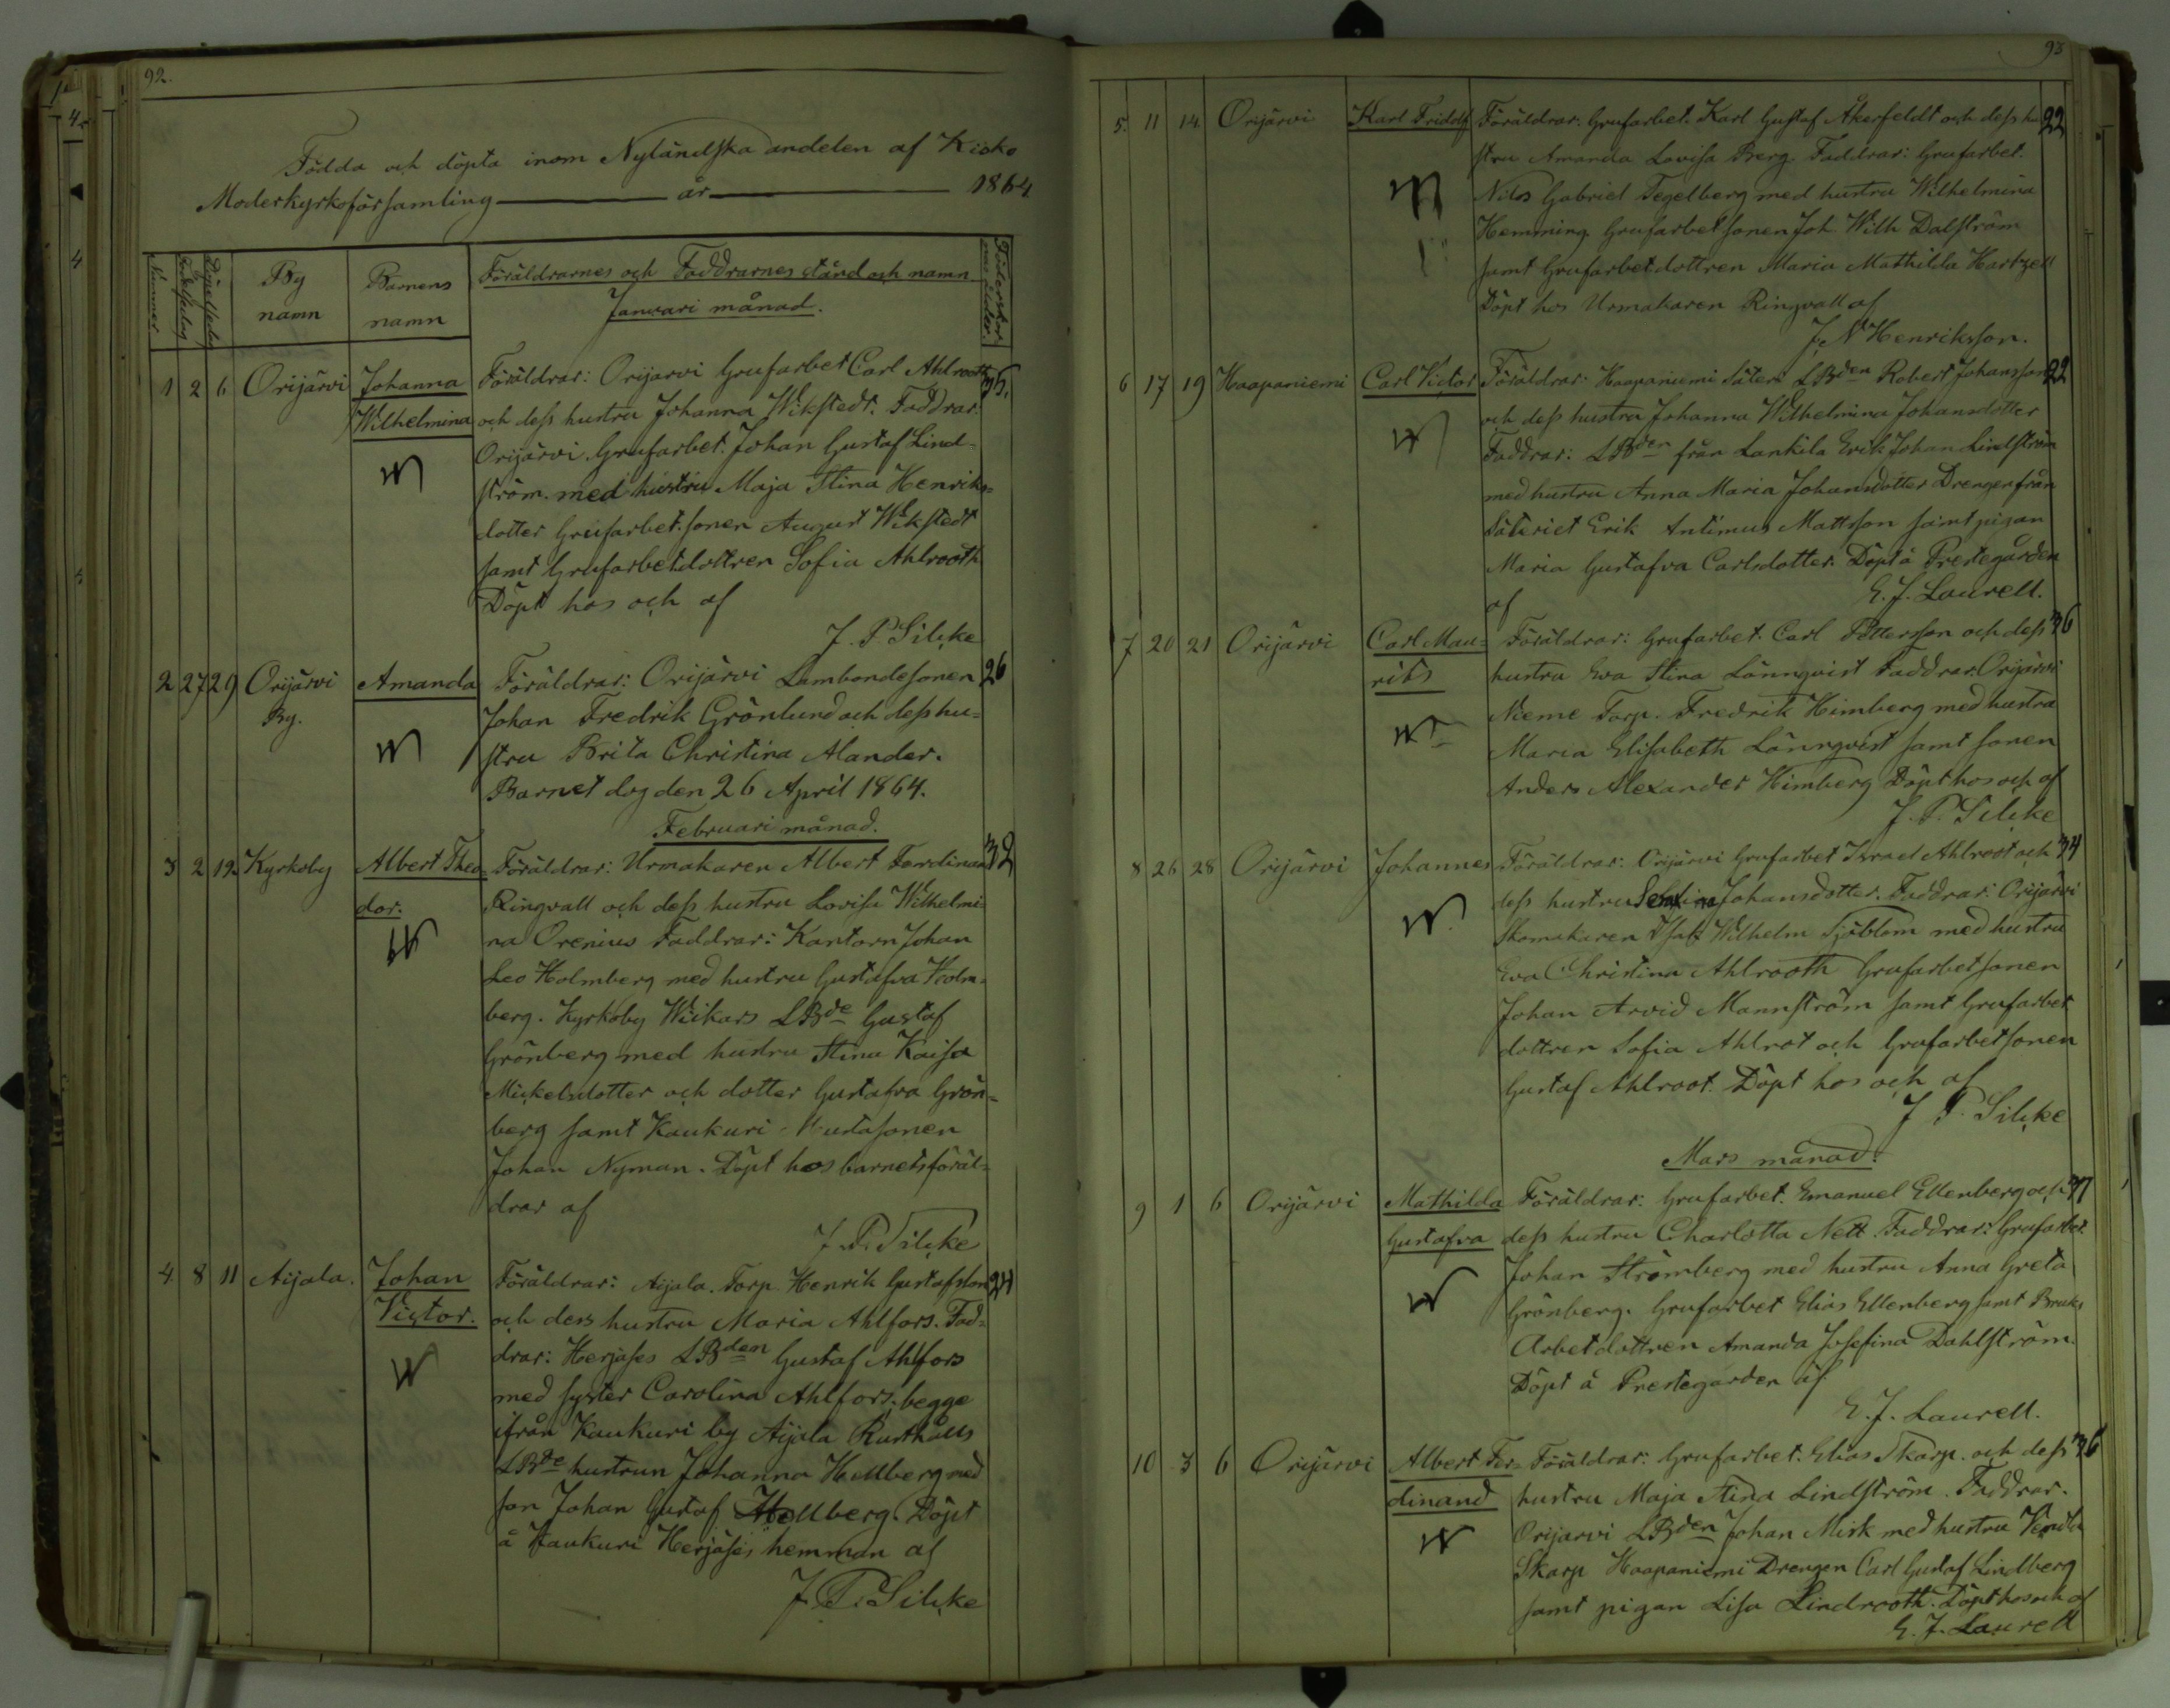 92.
Födda och döpta inom Nyländska andelen af Kisko
Moderkyrkoförsamling år 1864
Nummer
Födelsedag
Döpelsedag
By namn
Barnens namn
Föräldrarnes och Faddrarnes stånd och namn
Januari månad.
1 2 6 Orijärvi Johanna Föräldrar: Orijarvi Grufarbet Carl Ahlrooth 35.
Wilhelmina och dess hustru Johanna Wikstedt. Faddrar:
Orijärvi Grufarbet. Johan Gustaf Lind-
ström. med hustru Maja Stina Henriks=
dotter Grufarbet. sonen August Wikstedt
samt Grufarbetdottren Sofia Ahlrooth
Döpt hos och af
J. P. Silcke
2 27 29 Orijärvi Amanda Föräldrar: Orijärvi Lambondesonen 26
By. Johan Fredrik Grönlund och dess hu=
stru Brita Christina Alander.
Barnet dog den 26 April 1864.
Februari månad.
3 2 12. Kyrkoby Albert Theo= Föräldrar: Urmakaren Albert Ferdinand 32
dor. Ringvall och dess hustru Lovisa Wilhelmi
na Orenius Faddrar: Kantorn Johan
Leo Holmberg med hustru Gustafva Holm=
berg. Kyrkoby Wiikars LBde Gustaf
Grönberg med hustru Stina Kaisa
Mickelsdotter och dotter Gustafva Grön=
berg samt Kaukuri sonen
Johan Nyman. Döpt hos barnets föräl=
drar af
J. P. Silcke
4 8 11 Aijala. Johan Föräldrar: Aijala. Torp. Henrik Gustafsson 24
Victor. och dess hustru Maria Ahlfors. Fad=
drar: Herjases LBden Gustaf Ahlfors
med syster Carolina Ahlfors, begge
ifrån Kaukuri by Aijala Rusthålls
LBde hustrun Johanna Hellberg med
son Johan Gustaf Hellberg. Döpt
å Kaukuri Herjases hemman af
J. P. Silcke
93
5. 11 14 Orijärvi Karl Fridolf Föräldrar: Grufarbet. Karl Gustaf Åkerfeldt och dess hu 22
stru Amanda Lovisa Berg. Faddrar: Grufarbet.
Nils Gabriel Tegelberg med hustru Wilhelmina
Hemming. Grufarbetsonen Joh. Wilh Dalström
samt Grufarbetdottren Maria Mathilda Hartzell
Döpt hos Urmakaren Ringvall af
J. N Henriksson.
6 17 19 Haapaniemi Carl Victor Föräldrar: Haapaniemi Säteri LBden Robert Johansson 22
och dess hustru Johanna Wilhelmina Johansdotter
Faddrar: LBden från Lankila Erik Johan Lindström
med hustru Anna Maria Johansdotter Drengen från
Säteriet Erik Antimus Mattsson samt pigan
Maria Gustafva Carlsdotter. Döpt å Prestegården
af E. J. Laurell.
7 20 21 Orijärvi Carl Mau= Föräldrar: Grufarbet. Carl Pettersson och dess 36
rits hustru Ewa Stina Lönnqvist Faddrar: Orijärvi
Nieme Torp. Fredrik Himberg med hustru
Maria Elisabeth Lönnqvist samt sonen
Anders Alexander Himberg Döpt hos och af
J. P. Silcke
8 26 28 Orijärvi Johannes Föräldrar: Orijärvi Grufarbet Israel Ahlroot och 34
dess hustru Johansdotter. Faddrar: Orijärvi
Skomakaren Isak Wilhelm Sjöblom med hustru
Eva Christina Ahlrooth Grufarbetsonen
Johan Arvid Mannström samt Grufarbet
dottren Sofia Ahlrot och Grufarbetsonen
Gustaf Ahlroot. Döpt hos och af
J P. Silcke
Mars månad.
9 1 6 Orijärvi Mathilda Föräldrar: Grufarbet. Emanuel Ellenberg och 37
Gustafva dess hustru Charlotta Nett. Faddrar: Grufarbet.
Johan Strömberg med hustru Anna Greta
Grönberg. Grufarbet Elias Ellenberg samt Bruks
Arbetdottren Amanda Josefina Dahlström.
Döpt å Prestegården af
E. J. Laurell.
10 3 6 Orijärvi Albert Fer= Föräldrar: Grufarbet. Elias Skarp. och dess 36
dinand hustru Maja Stina Lindström. Faddrar.
Orijarvi LBden Johan Misk med hustru Vendla
Skarp Haapaniemi Drengen Carl Gustaf Lindberg
samt pigan Lisa Lindrooth. Döpt hos och af
E. J. Laurell